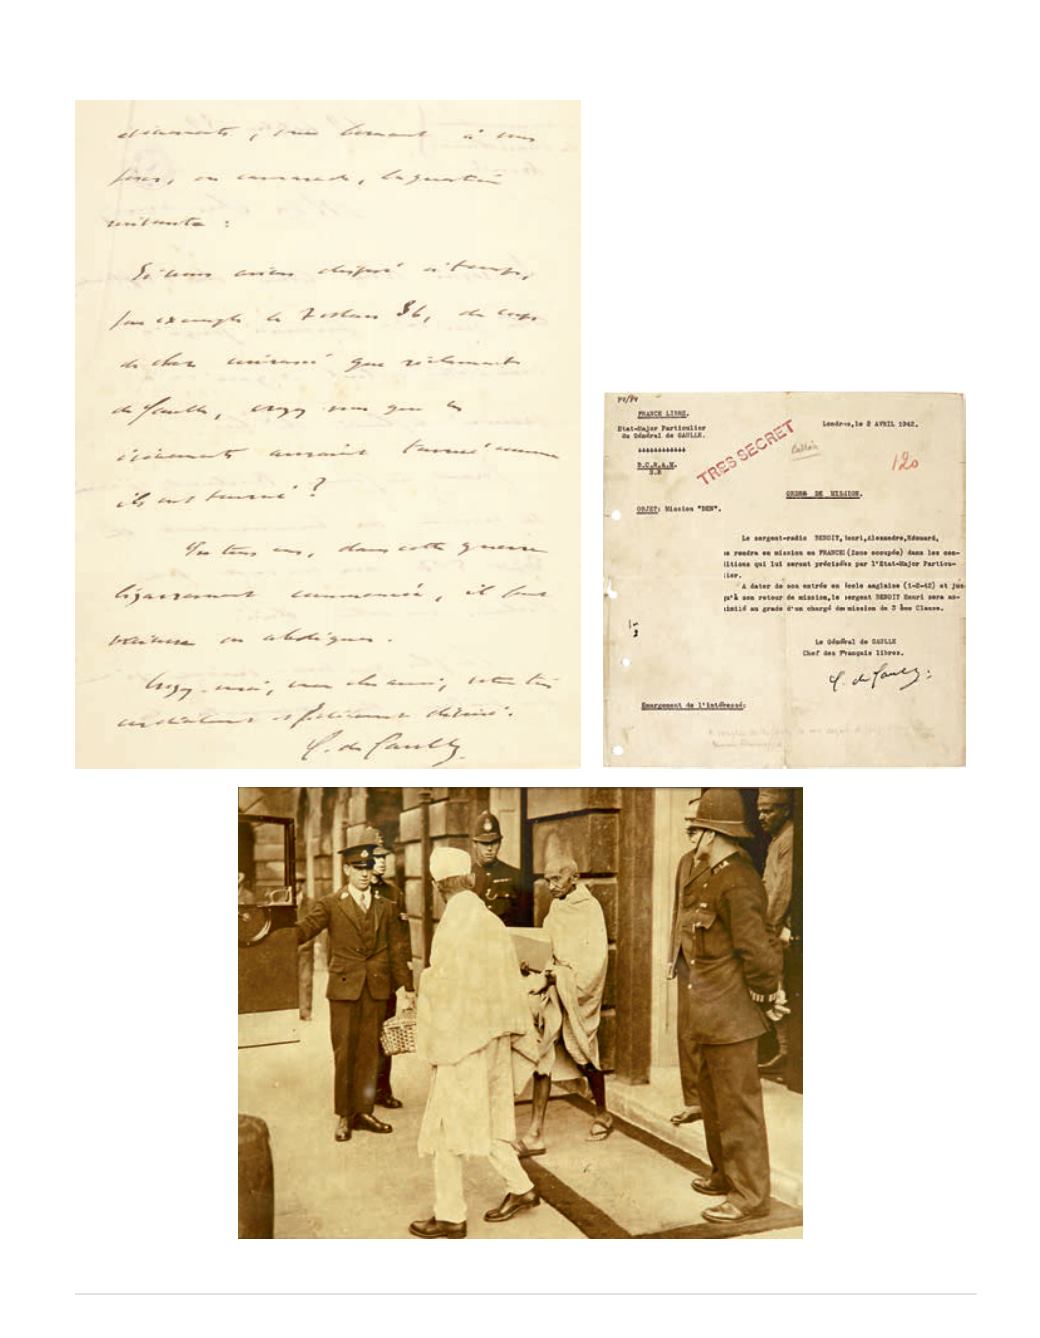 à vous
poser, en camarade, la question
suivante :
Si nous avions disposé à temps,
par exemple le 7 mars 36, du corps
de chars cuirassé que réclamait
de Gaulle, croyez vous que les
événements auraient tourné comme
ils ont tourné ?
En tous cas, dans cette guerre
bizarrement commencée, il faut
vaincre ou abdiquer.
Croyez-moi, mon cher ami, votre très
cordialement et fidèlement dévoué.
C. de Gaulle
FRANCE LIBRE.
Etat-Major Particulier
du Général de GAULLE.
++++++++++++
B.C.R.A.M.
S.R
TRES SECRET
Londres, le 2 AVRIL 1942.
120
ORDRE DE MISSION.
OBJET: Mission "BEN".
Le sergent-radio BENOIT, Henri, Alexandre, Edouard,
se rendra en mission en FRANCE (Zone occupée) dans les con-
ditions qui lui seront précisées par l'Etat-Major Particu-
lier.
A dater de son entrée en école anglaise (1-2-42) et jus-
qu'à son retour de mission, le sergent BENOIT Henri sera as-
similé au grade d'un chargé de mission de 3 ème Classe.
Le Général de GAULLE
Chef des Français libres.
C. de Gaulle
Emargement de l'intéressé: